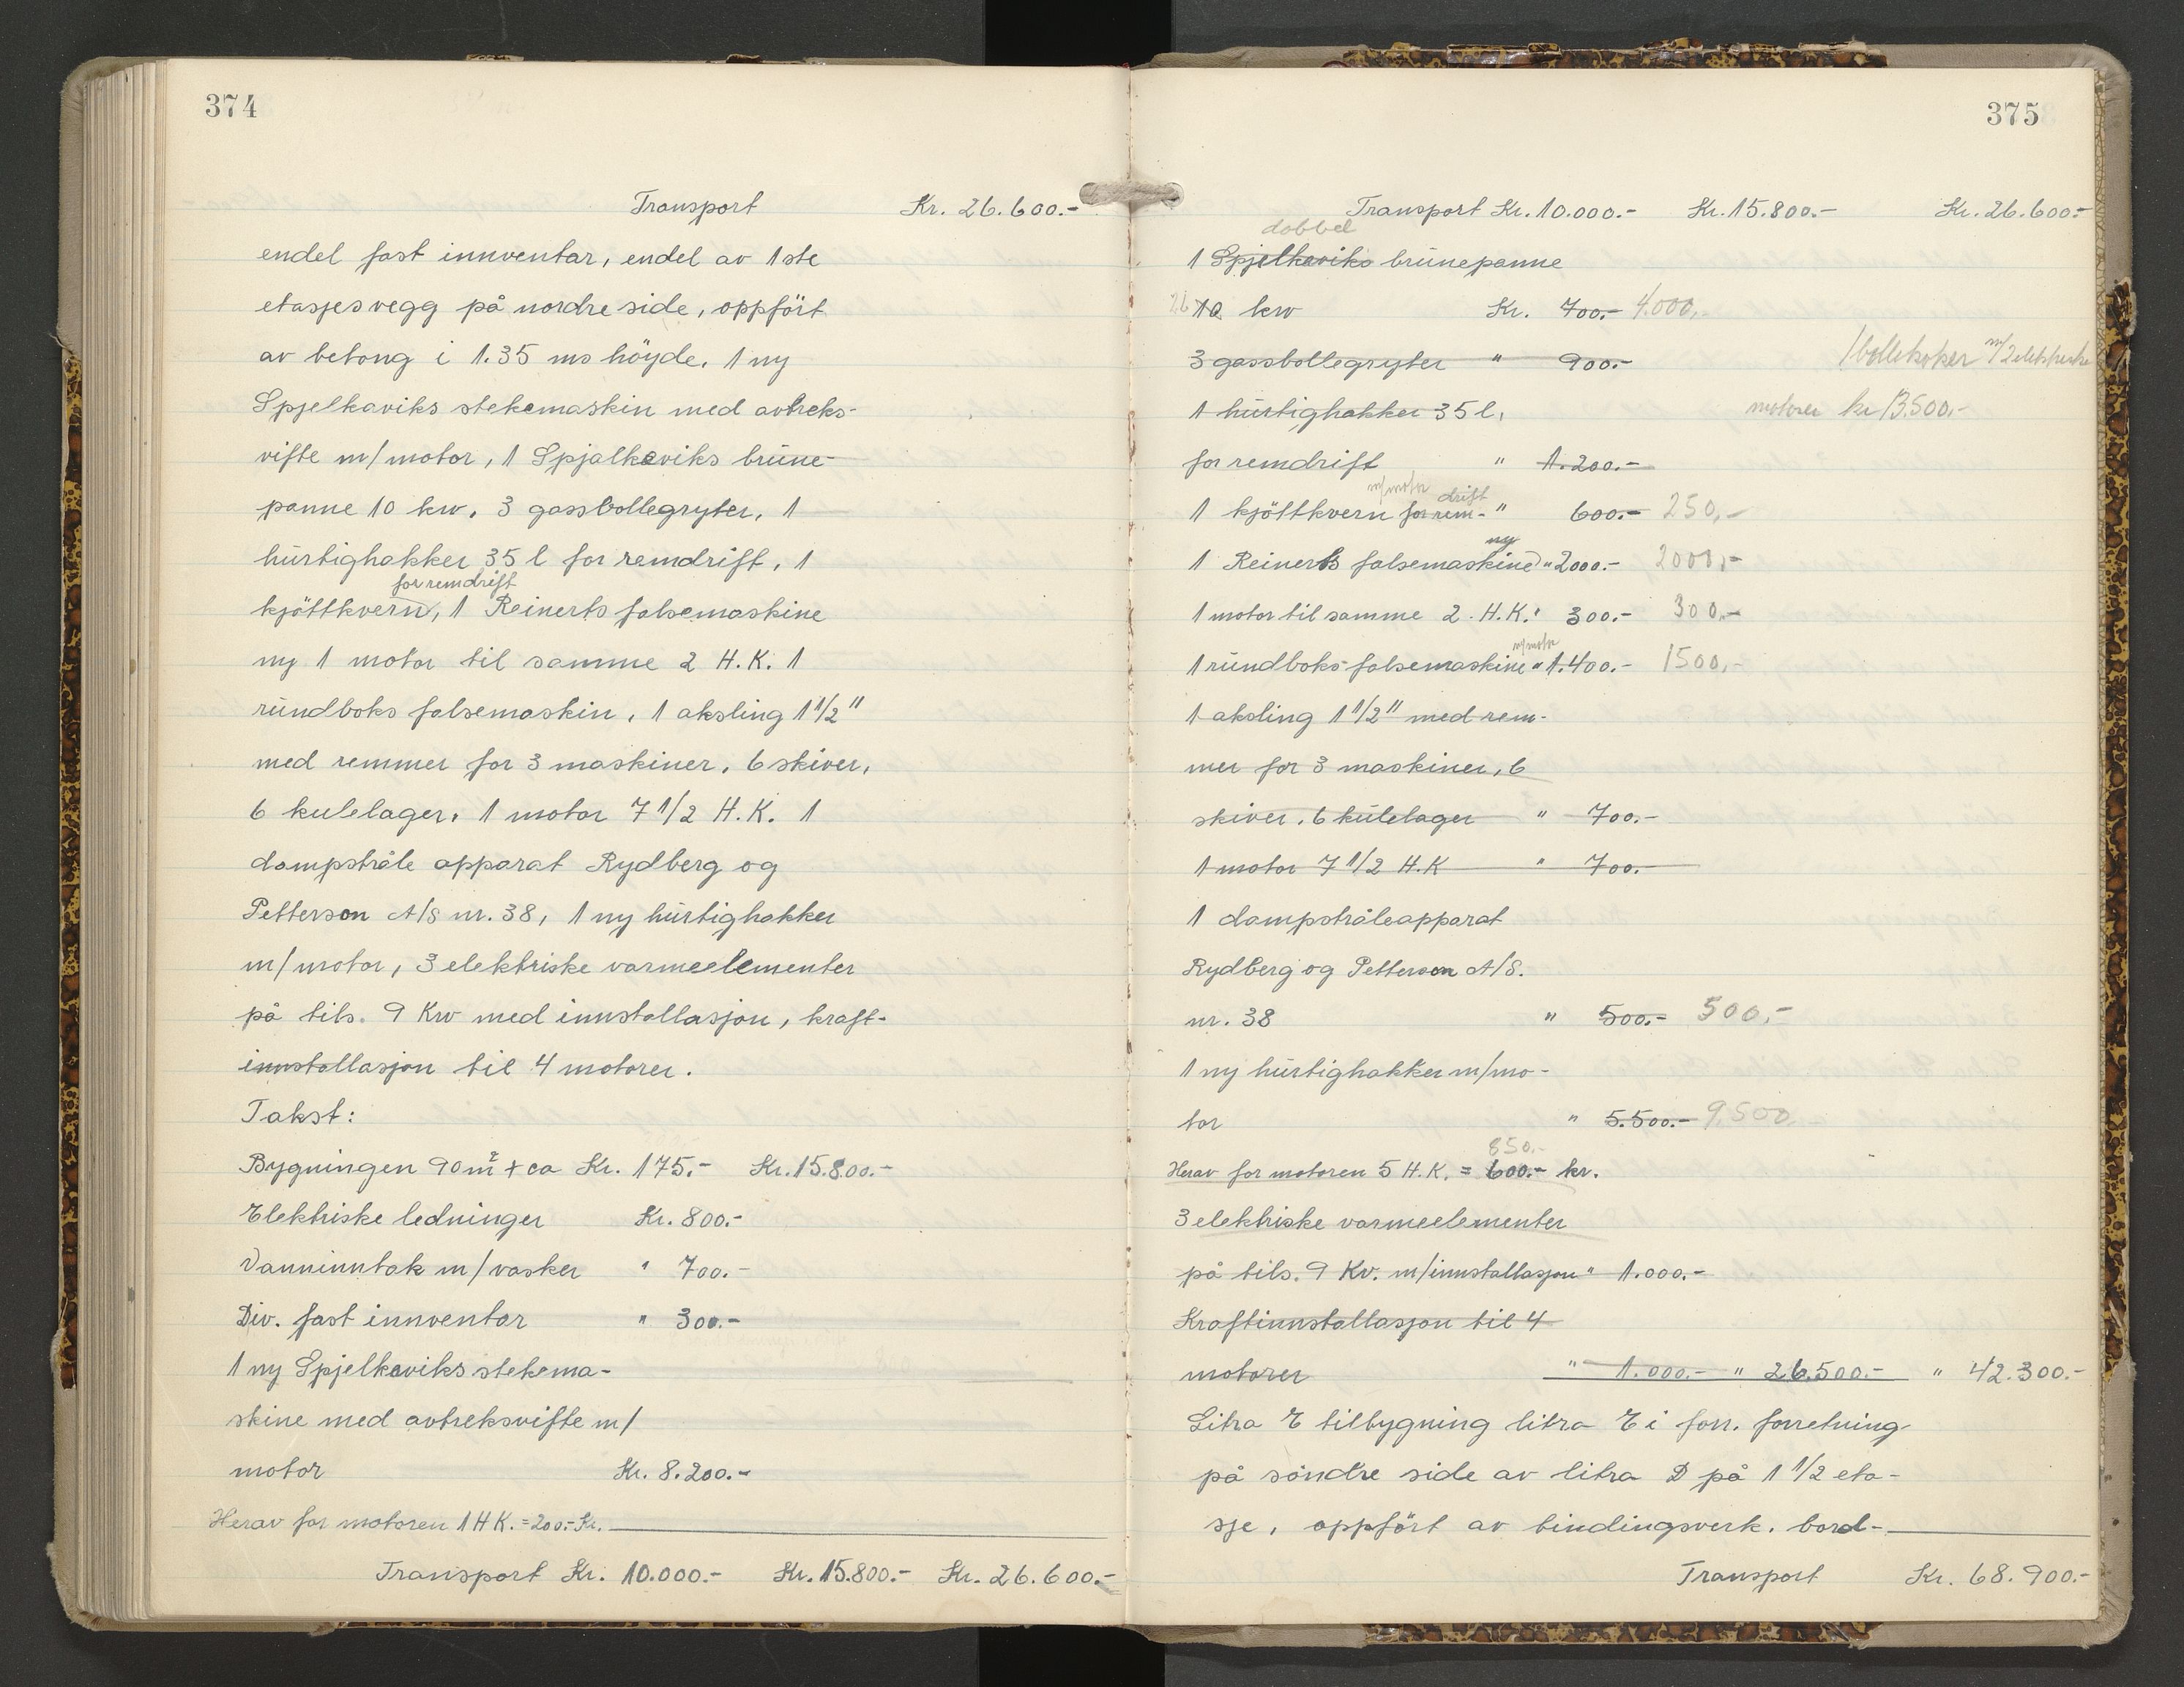 374
Transport Kr. 26.600.-
endel fast innventar, endel av 1ste
etasjesvegg på nordre side, oppfört
av betong i 1.35 ms höyde. 1 ny
Spjelkaviks stekemaskin med avtreks-
vifte m/motor, 1 Spjalkaviks brüne-
panne 10 kw. 3 gassbollegryter. 1
hürtighakker 35 l for remdrift, 1
for remdrift
kjöttkvern, 1 Reinerts falsemaskine
ny 1 motor til samme 2 H.K. 1
ründboks falsemaskin. 1 aksling 1 1/2"
med remmer for 3 maskiner. 6 skiver,
6 kulelager. 1 motor 7 1/2 H.K. 1
dampstråle apparat Rydberg og
Petterson A/S nr. 38, 1 ny hürtighakker
m/motor, 3 elektriske varmeelementer
på tils. 9 Kw med innstallasjon, kraft-
innstallasjon til 4 motorer.
Takst:
Bygningen 90 m² + ca Kr. 175.- Kr. 15.800.-
Elektriske ledninger Kr. 800.-
Vanninntak m/vasker " 700.-
Div. fast innventar " 300.-
1 ny Spjelkaviks stekema-
skine med avtreksvifte m/
motor Kr. 8.200.-
Herav for motoren 1 H K. = 200.- Kr.
Transport Kr. 10.000.- Kr. 15.800.- Kr. 26.600.-
375
Transport Kr. 10.000.- Kr. 15.800.- Kr. 26.600.-
dobbel
1 Spjelkaviks brünepanne
26 10 kw Kr. 700.- 4.000,-
3 gassbollegryter " 900.- 1 bollekoker m/2 elektriske
1 hürtighakker 35 l. motorer kr 13.500.-
for remdrift " 1.200.-
m/motor drift
1 kjöttkvern for rem- " 600.- 250,-
ny
1 Reinerts falsemaskine " 2000.- 2000,-
1 motor til samme 2. H.K. " 300.- 300,-
m/motor
1 ründboks falsemaskine " 1.400.- 1500,-
1 aksling 1 1/2" med rem-
mer for 3 maskiner, 6
skiver. 6 külelager " 700.-
1 motor 7 1/2 H.K " 700.-
1 dampstråleapparat
Rydberg og Petterson A/S.
nr. 38 " 500.- 500,-
1 ny hürtighakker m/mo-
tor " 5.500.- 9.500
850.-
Herav for motoren 5 H.K. = 600.- kr.
3 elektriske varmeelementer
på tils. 9 Kv. m/innstallasjon " 1.000.-
Kraftinnstallasjon til 4
motorer " 1.000.- " 26.500.- " 42.300.-
Litra E tilbygning litra E i forr. forretning
på söndre side av litra D på 1 1/2 eta-
sje, oppfört av bindingsverk. bord-
Transport Kr. 68.900.-